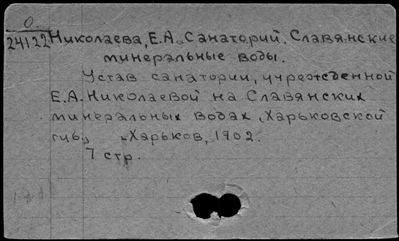 0.
24122 Николаева, Е.А. Санаторий. Славянские
минеральные воды.
Устав санатории, учрежденной
Е.А. Николаевой на Славянских
минеральных водах, Харьковской
губ., Харьков, 1902.
7 стр.